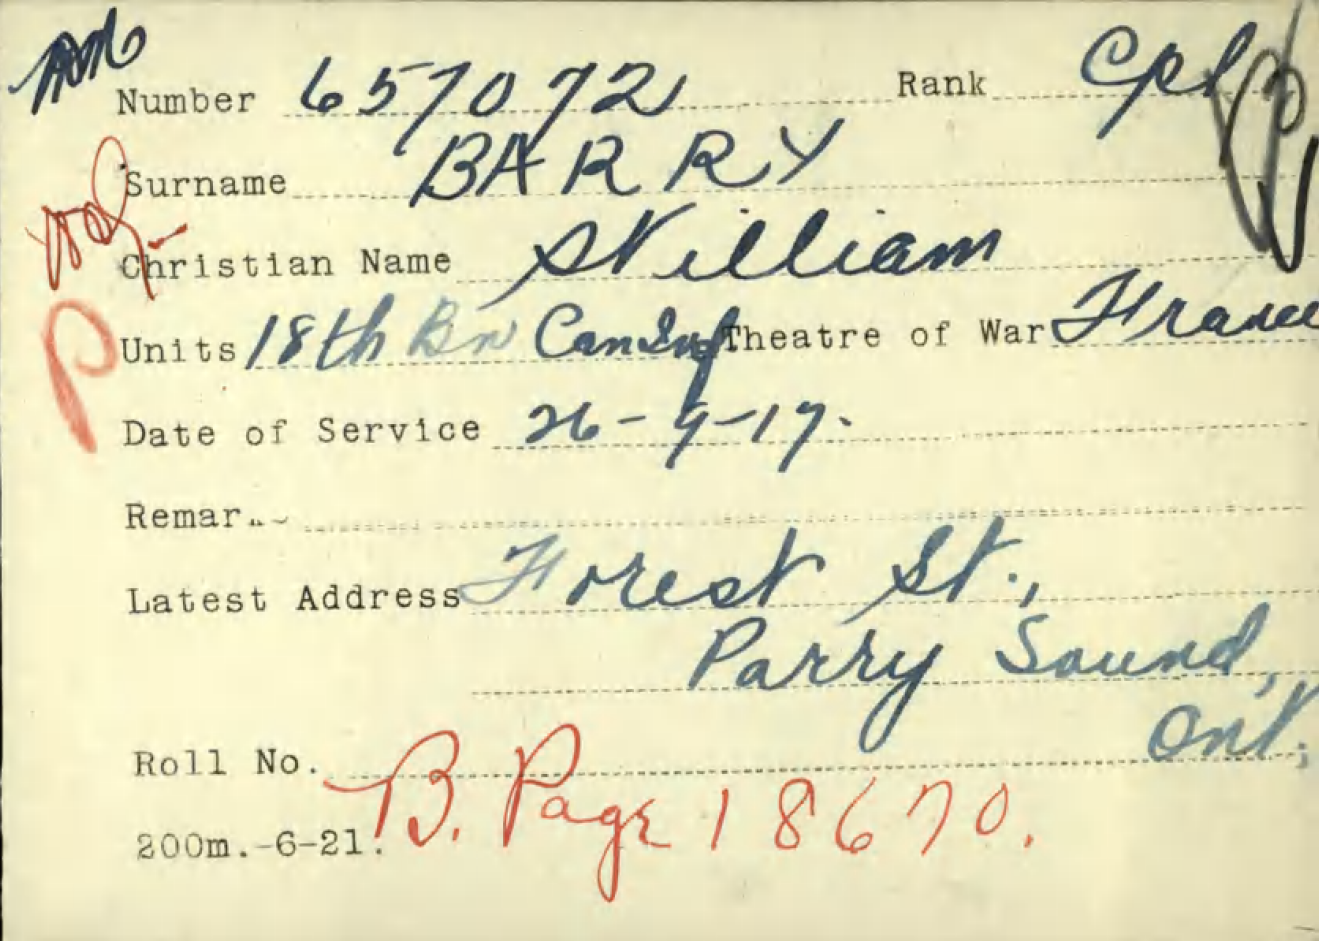 Number 657072 Rank Cpl
Surname BARRY
Christian Name William
Units 18th Bn Can Inf Theatre of War France
Date of Service 26-9-17.
Remar
Latest Address Forest St.,
Parry Sound,
Ont,
Roll No.
B. Page 18670.
200m.-6-21.